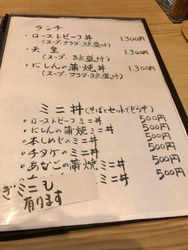 ランチ
・ローストビーフ丼 1,300円
(スープ、サラダ・3点盛付)
・天重 1,300円
(スープ、3点盛付)
・にしんの蒲焼丼 1,300円
(スープ、サラダ・3点盛付)
ミニ丼 (そばとセットでどうぞ)
・ローストビーフミニ丼 500円
・にしんの蒲焼ミニ丼 500円
・本しめじのミニ丼 500円
・チタケのミニ丼 500円
・あなごの蒲焼ミニ丼 500円
ミニ丼 500円
ミニも
有ります